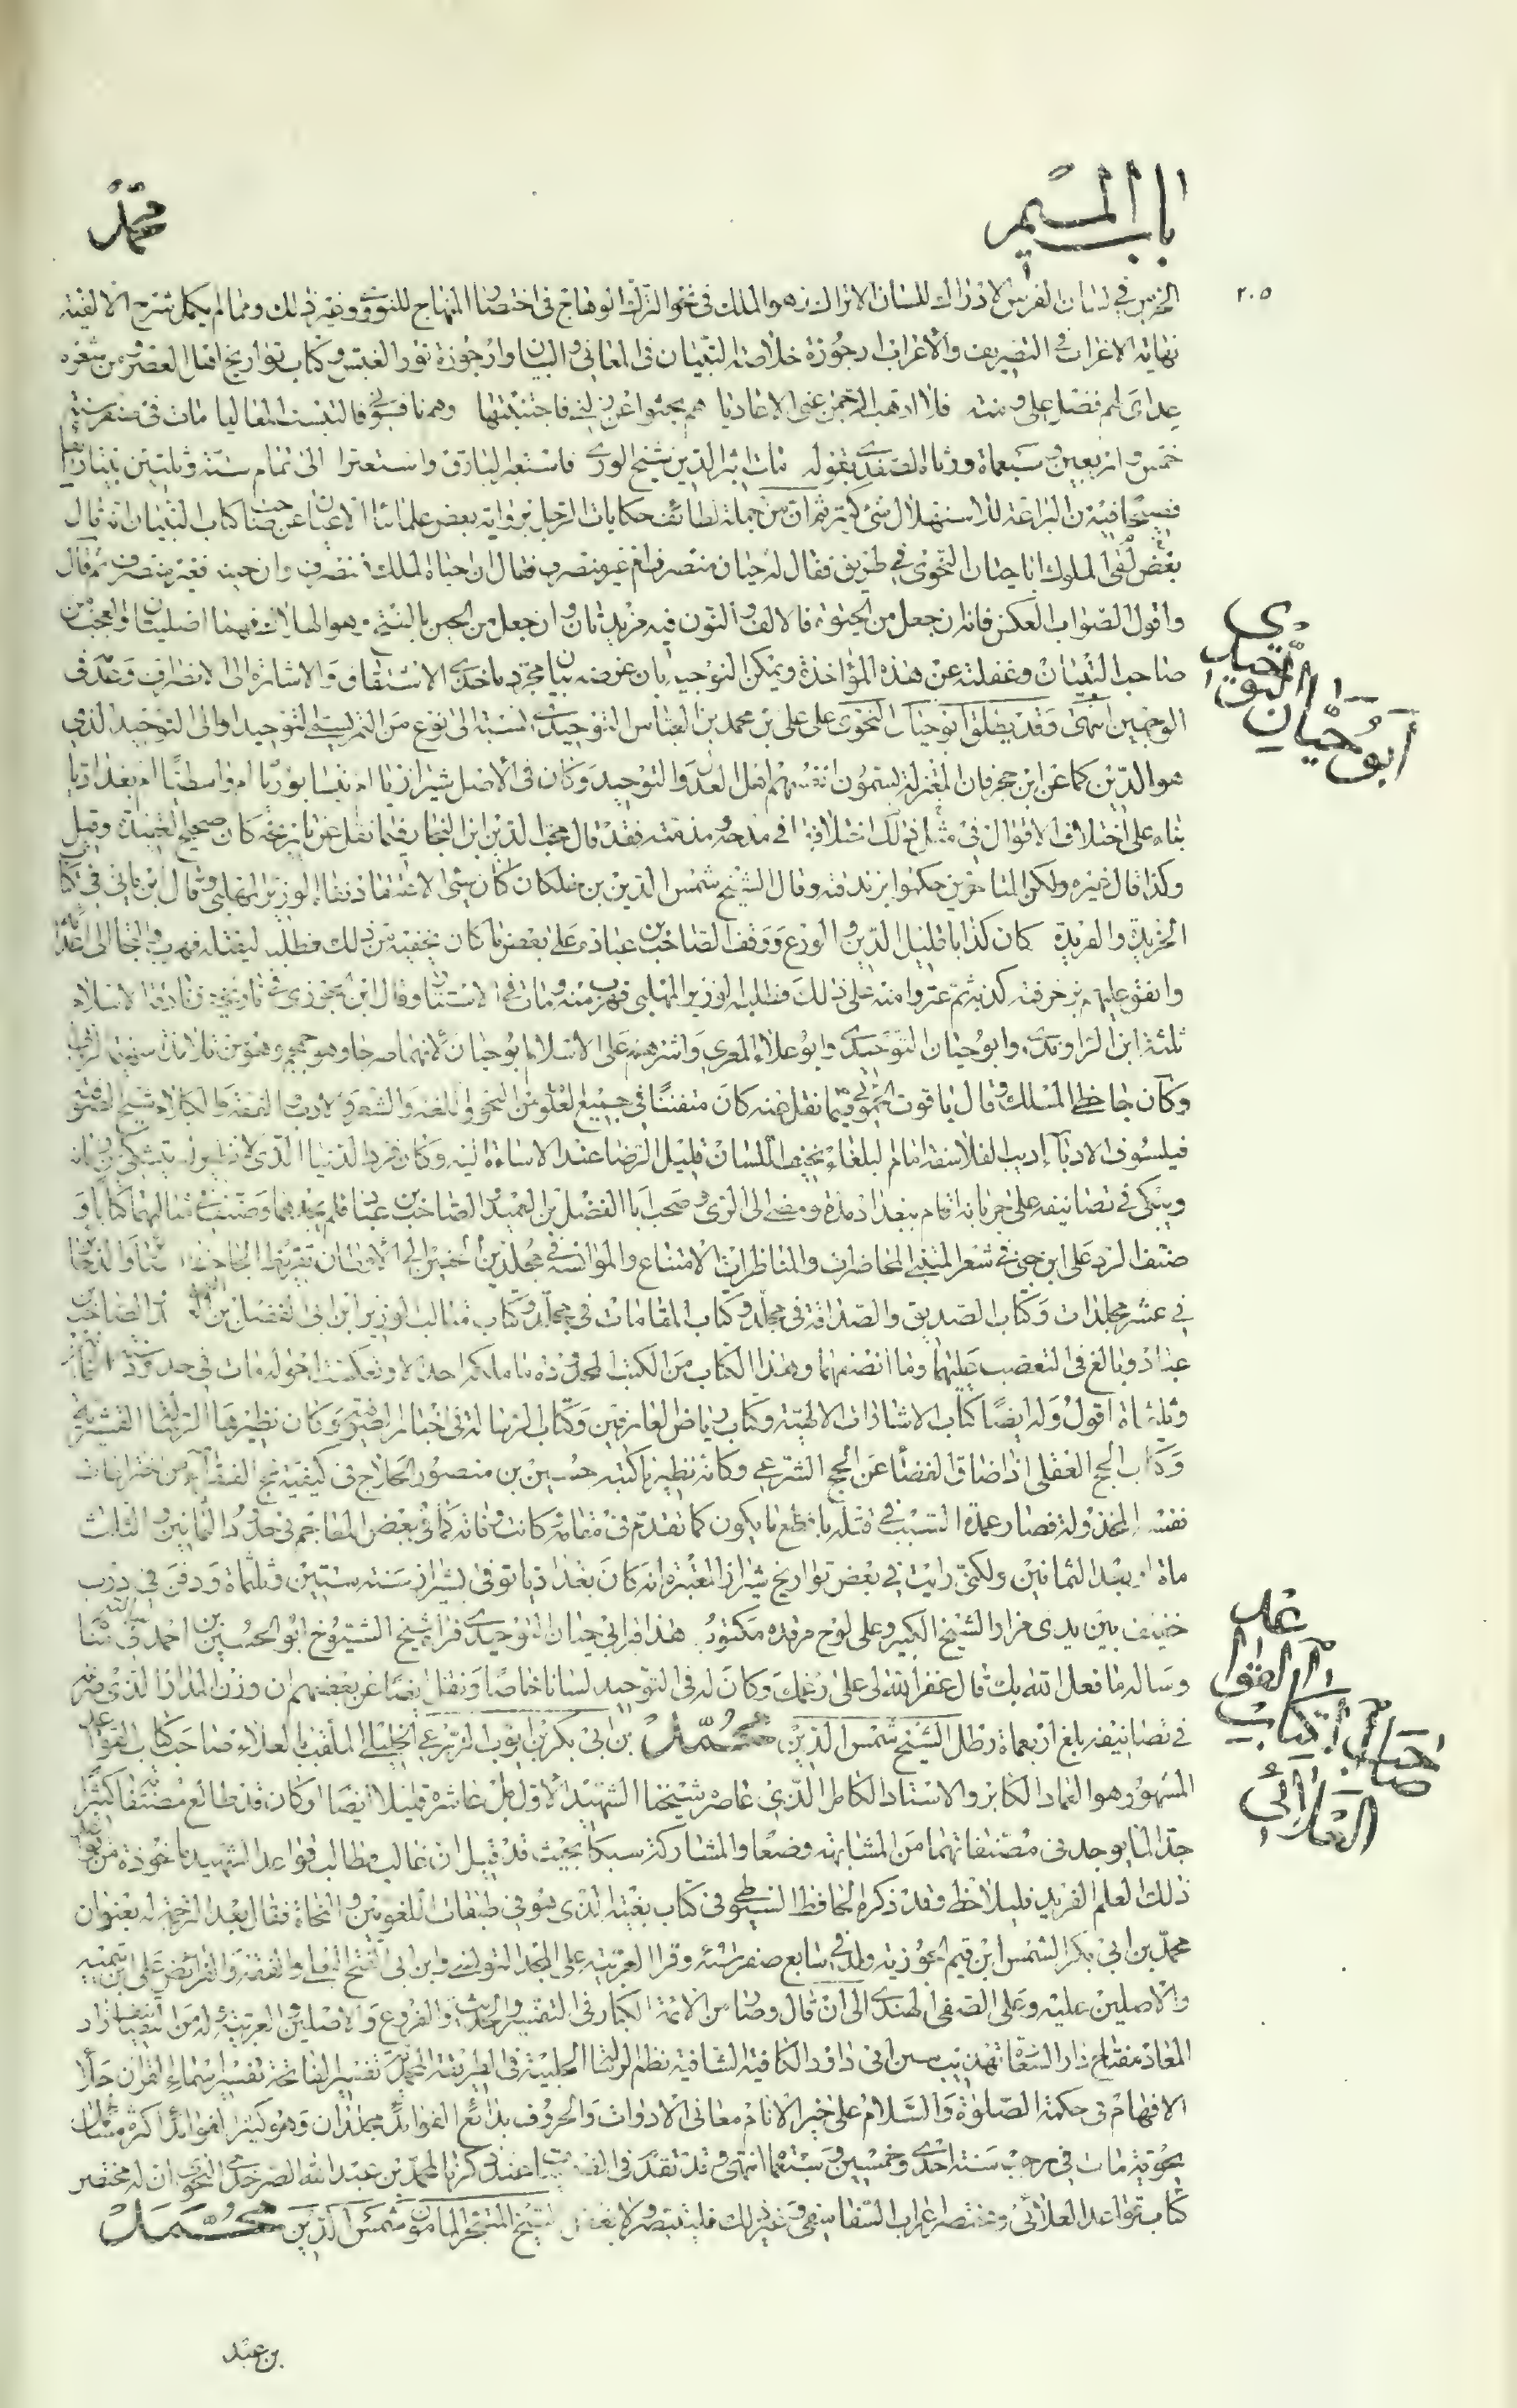 باب الميم
محمد
٢٠٥
الخرس في لسان الفرس الادراك للسان الاتراك زهو الملك في نحو الترك الوهاج في اختصار المنهاج للنووي وغير ذلك ومما لم يكمل شرح الالفية
نهاية الاغراب في التصريف والاعراب ارجوزة خلاصة التبيان في المعاني والبيان وارجوزة نور الغبش وكتاب تواريخ اهل العصر ومن شعره
عداى لهم فضل على ومنة فلا اذهب الرحمن عنى الاعاديا هم بحثوا عن زلتى فاجتنبتها وهم نافسونى فاكتسبت المعاليا مات في صفر سنة
خمس واربعين وسبعماة ورثاه الصفدي بقوله مات اثير الدين شيخ الورى فاستعر البارق واستعبرا الى تمام ستة وثلثين بيتا
فيه من البراعة للاستهلال شئ كثير ثم ان من جملة لطائف حكايات الرجل برواية بعض علمائنا الاعيان عن صاحب كتاب التبيان انه قال
بعض لقى الملوك ابا حيان النحوى في طريق فقال له حيان منصرف ام غير منصرف فقال ان حياه الملك انصرف وان حينه فغير منصرف ثم قال
واقول الصواب العكس فانه ان جعل من الحيوة فالالف والنون فيه مزيدتان وان جعل من الحين بالفتح وهو الهلاك فهما اصليتان والعجب من
صاحب التبيان وغفلته عن هذه المؤاخذة ويمكن التوجيه بان غرضه بيان مجرد ماخذى الاشتقاق والاشارة الى الانصراف وعدمه في
الوجهين انتهى وقد يطلق ابو حيان النحوى على على بن محمد بن العباس التوحيدي نسبة الى نوع من التمر يسمى التوحيد او الى التوحيد الذى
هو الدين كما عن ابن حجر فان المعتزلة يسمون انفسهم اهل العدل والتوحيد وكان في الاصل شيرازيا ام نيسابوريا ام واسطيا ام بغداديا
بناء على اختلاف الاقوال في مثل ذلك اختلافها في مدحه ومذمته فقد قال محب الدين ابن النجار فيما نقل عن تاريخه كان صحيح العقيدة وقيل
وكذا قال غيره ولكن المتاخرين حكموا بزندقته وقال الشيخ شمس الدين بن خلكان كان سيئ الاعتقاد نفاه الوزير المهلبى وقال ابن مانى في كتاب
الخريدة والفريدة كان كذابا قليل الدين والورع ووقف الصاحب بن عباد على بعض ما كان يخفيه من ذلك فطلبه ليقتله فهرب والتجا الى اعدائه
وانفق عليهم بزخرفته كذبه ثم عثروا منه على ذلك فطلبه الوزير المهلبى فهرب منه ومات في الاستتار وقال ابن الجوزى في تاريخه زنادقة الاسلام
ثلثة ابن الراوندي وابو حيان التوحيدي وابو علاء المعري واشرهم على الاسلام ابو حيان لانهما صرحا وهو مجمجم وهو من تلامذة
وكان جاحظى المسلك وقال ياقوت الحموي فيما نقل عنه كان متفننا في جميع العلوم من النحو واللغة والشعر والادب والفقه والكلام شيخ الصوفية
فيلسوف الادباء اديب الفلاسفة امام البلغاء سخيف اللسان قليل الرضا عند الاساءة اليه وكان فرد الدنيا الذى لا نظير له يتشكى من زمانه
ويبكى في تصانيفه على حرمانه اقام ببغداد مدة ومضى الى الرى وصحب ابا الفضل بن العميد والصاحب بن عباد فلم يحمدهما وصنف في مثالبهما كتابا و
صنف الرد على ابن جنى في شعر المتنبى المحاضرات والمناظرات الامتاع والموانسة في مجلدين تقريظ الجاحظ
في عشر مجلدات وكتاب الصديق والصداقة في مجلد وكتاب المقامات في مجلد وكتاب مثالب الوزيرين ابى الفضل بن العميد والصاحب بن
عباد وبالغ في التعصب عليهما وما انصفهما وهذا الكتاب من الكتب المحدودة ما ملكه احد الا وتعكست احواله مات في حدود سنة
وثلثماة اقول وله ايضا كتاب الاشارات الالهية وكتاب رياض العارفين وكتاب الرسالة في اخبار الصوفية وكان نظيرها الرسالة القشيرية
وكتاب الحج العقلى اذا ضاق الفضا عن الحج الشرعى وكانه نظير ما كتبه حسين بن منصور الحلاج في كيفية حج الفقراء من
نفسه المخذولة فصار عمدة السبب في قتله كما تقدم في مقامه وكانت وفاته كما في بعض المعاجم في حدود الثمانين والثلث
ماة او بعد الثمانين ولكنى رايت في بعض تواريخ شيراز المعتبرة انه كان بغداديا توفى بشيراز سنة ستين وثلثماة ودفن في درب
خفيف بين يدى مزار الشيخ الكبير وعلى لوح مرقده مكتوب هذا قبر ابى حيان التوحيدي فراه شيخ الشيوخ ابو الحسين بن احمد في منامه
وساله ما فعل الله بك قال غفر الله لى على رغمك وكان له في التوحيد لسانا خاصا ونقل ايضا عن بعضهم ان وزن المداد الذى صرفه
في تصانيفه بلغ اربعماة رطل الشيخ شمس الدين محمد بن ابى بكر بن ايوب الزرعى الحنبلى الملقب بالعلاء صاحب كتاب القواعد
المشهور هو العماد الكابر والاستاد الكامل الذى عاصره شيخنا الشهيد الاول بل عاشره قليلا ايضا او كان قد طالع مصنفاته كثيرا
جدا لما يوجد في مصنفاتهما من المشابهة وضعا والمشاركة سبكا بحيث قد قيل ان غالب مطالب قواعد الشهيد ماخوذة من قواعد
ذلك العلم الفريد فليلاحظ وقد ذكره الحافظ السيوطى في كتاب بغيته الذى هو في طبقات اللغويين والنحاة فقال بعد الترجمة له بعنوان
محمد بن ابى بكر الشمس ابن قيم الجوزية ولد في سابع صفر سنة وقرا العربية على المجد التونسى وابن ابى الفتح البعلى والفقه والفرائض على ابن تيمية
والاصلين عليه وعلى الصفى الهندي الى ان قال وصار من الائمة الكبار في التفسير والحديث والفروع والاصلين والعربية وله من التصانيف زاد
المعاد مفتاح دار السعادة تهذيب سنن ابى داود الكافية الشافية نظم الرسالة الحلبية في الطريقة المحمدية تفسير الفاتحة تفسير اسماء القرآن جلاء
الافهام في حكمة الصلوة والسلام على خير الانام معانى الادوات والحروف بدائع الفوائد مجلدان وهو كثير الفوائد اكثره مسائل
نحوية مات في رجب سنة احدى وخمسين وسبعماة انتهى وقد تقدم في ذكر محمد بن عبد الله الصرخدى النحوى ان له مختصر
كتاب قواعد العلائى ومختصر اعراب السفاقسى وغير ذلك فليتبصر ولا يغفل الشيخ المتبحر المامون شمس الدين محمد
ابو حيان التوحيدي
صاحب كتاب القواعد العلائى
بن عبد